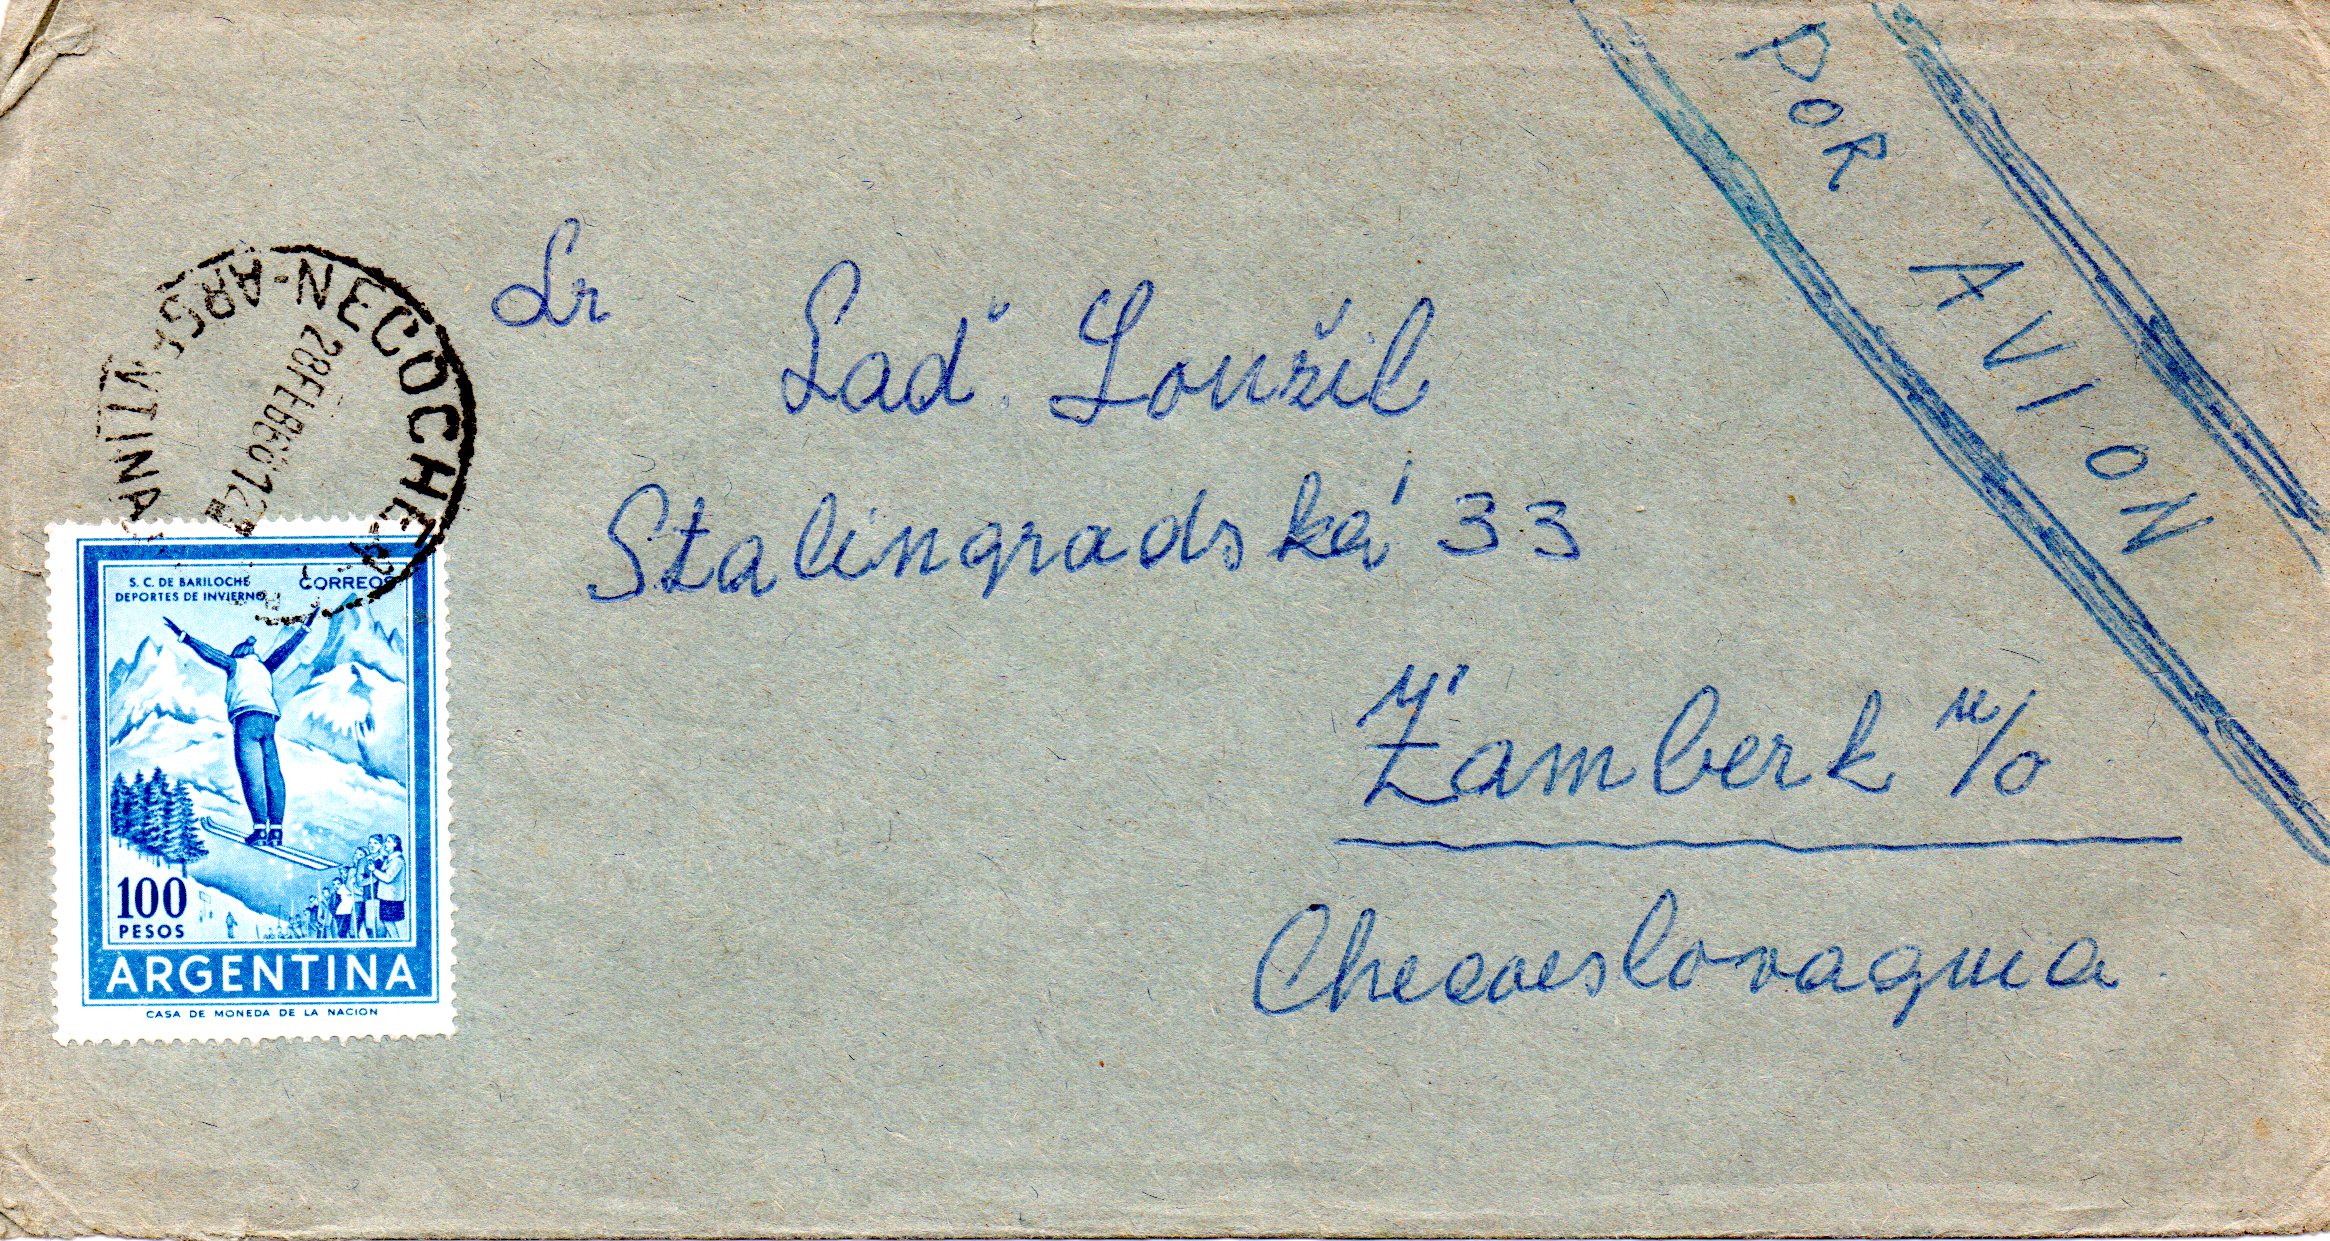 POR AVION
Sr
Lad. Loužil
Stalingradská 33
Žamberk n/o
Checoeslovaquia
NECOCHEA
ARGENTINA
28 FEB 66 12
S. C. DE BARILOCHE
DEPORTES DE INVIERNO
CORREOS
100
PESOS
ARGENTINA
CASA DE MONEDA DE LA NACION